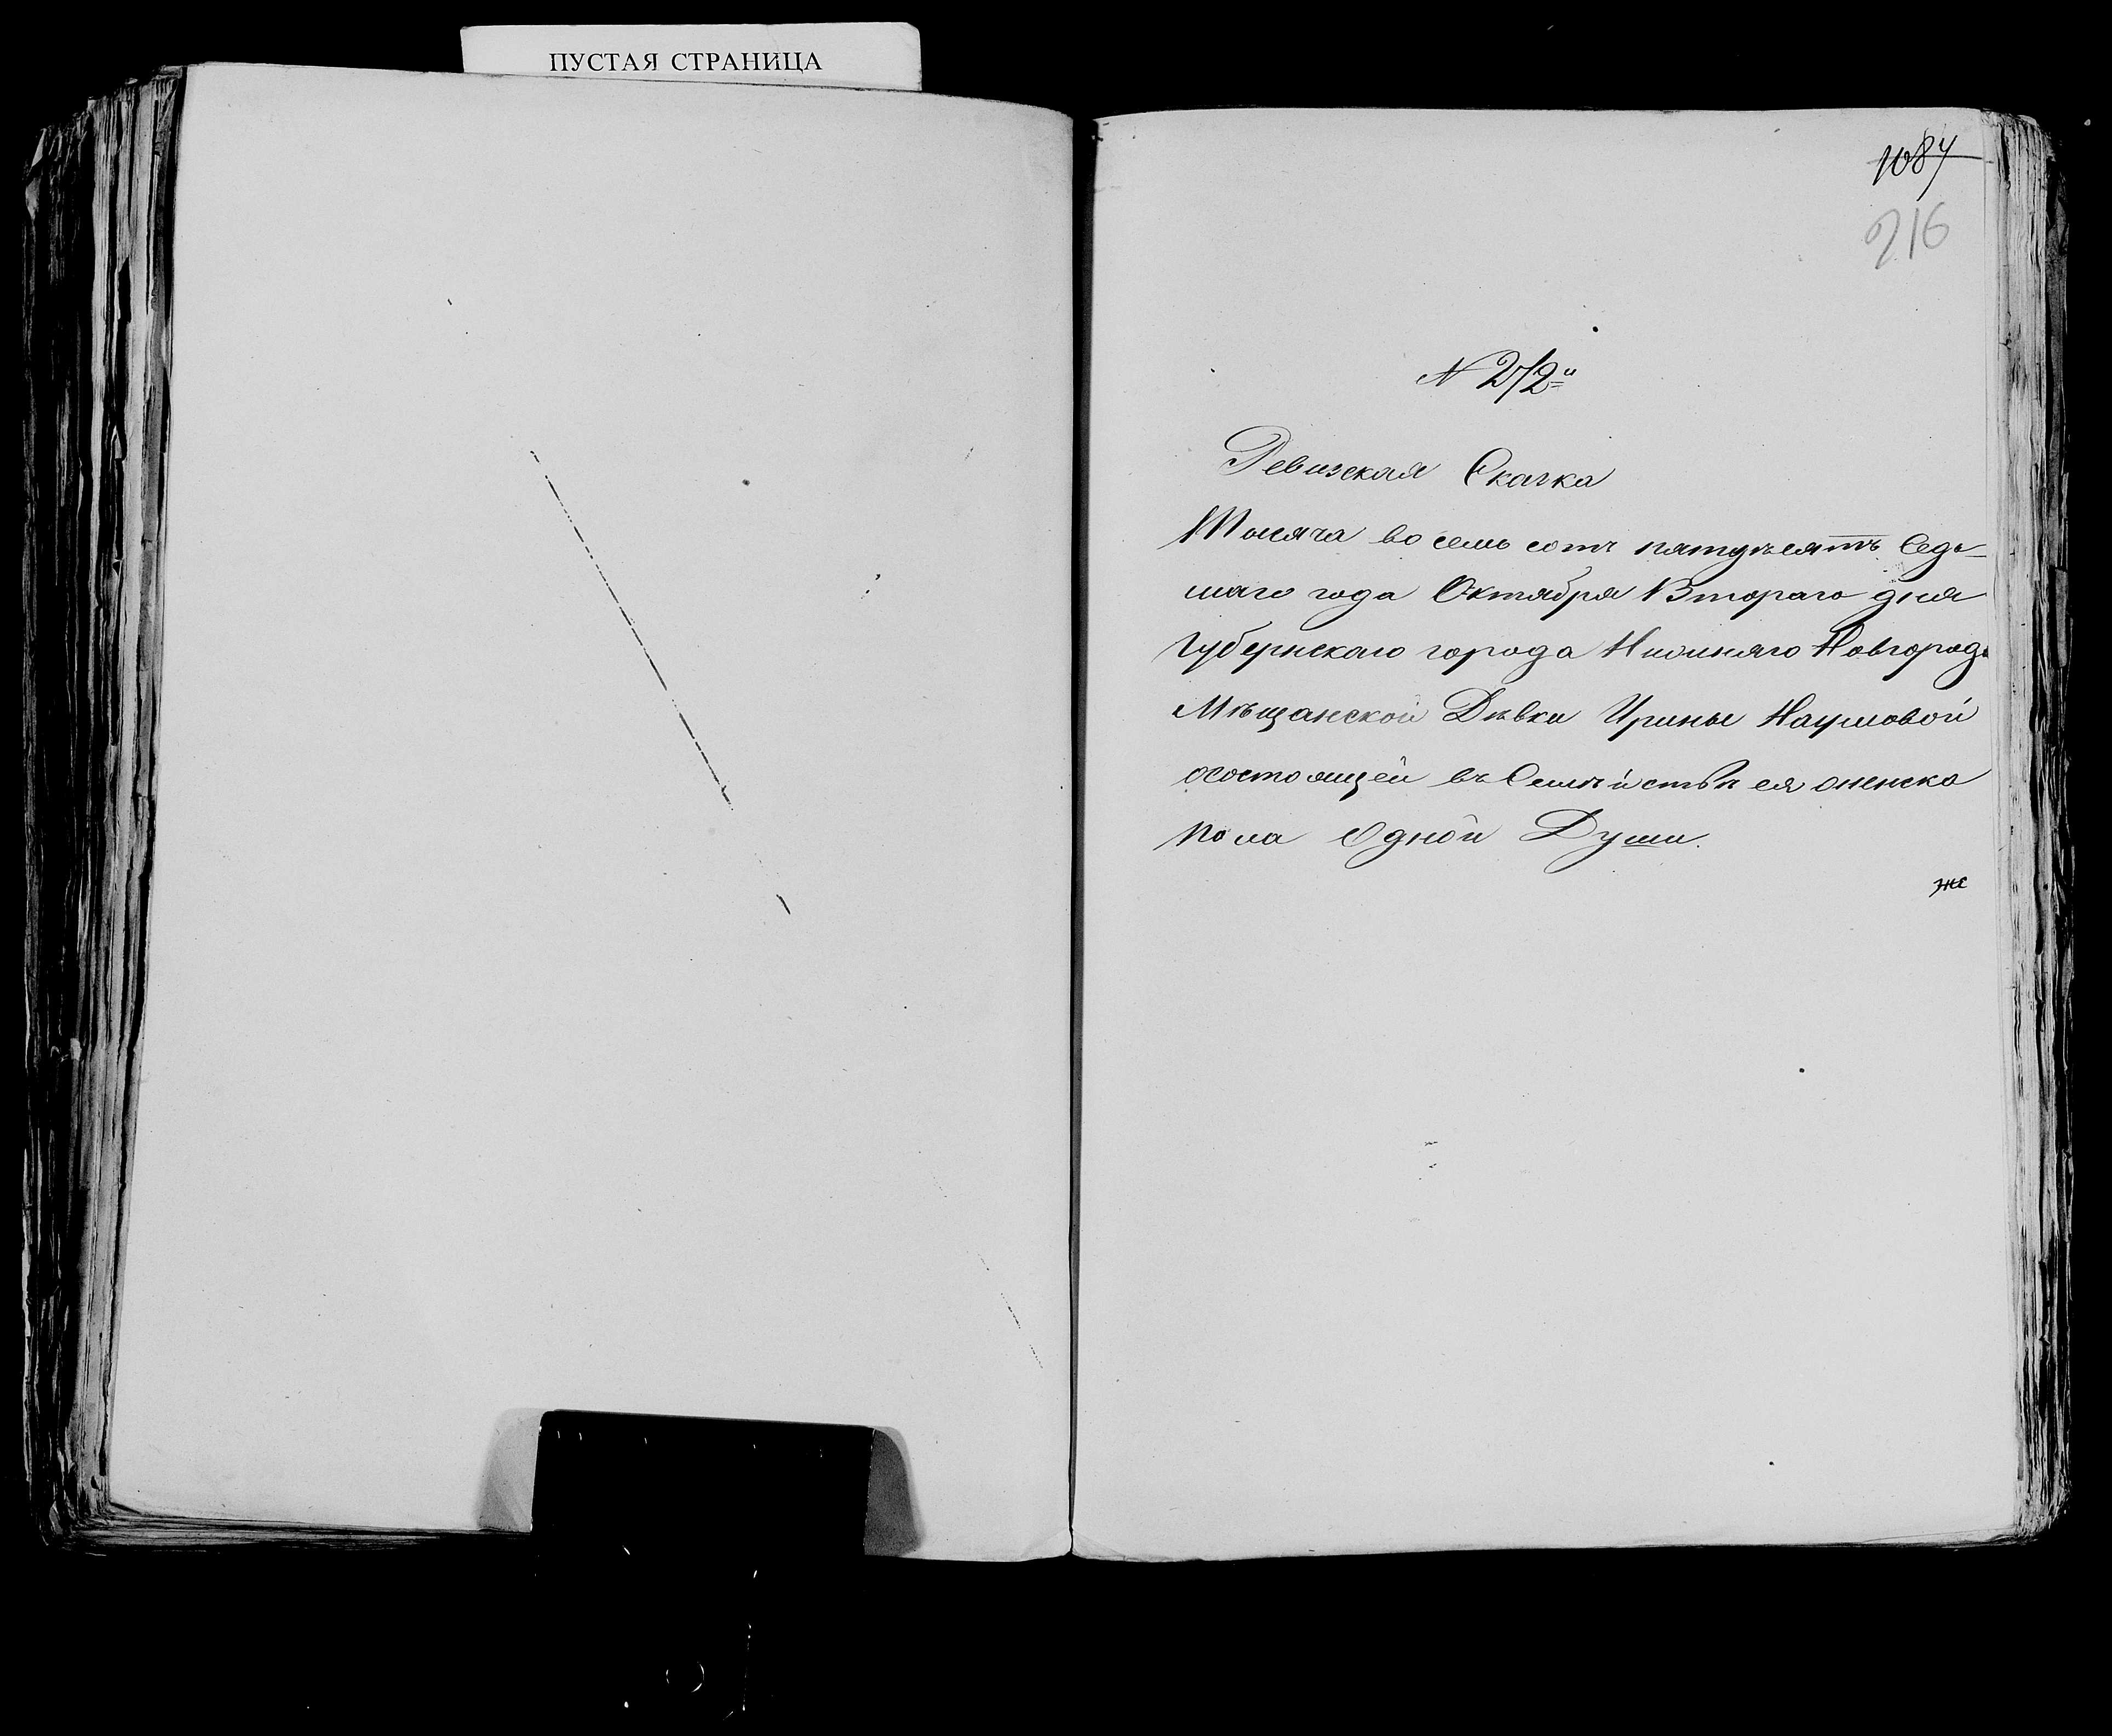 ПУСТАЯ СТРАНИЦА
1084
216
N 272й
Ревизская Сказка
Тысяча восемь сотъ пятдѣсятъ Седь-
маго года Октября Втораго дня
Губернскаго города Нижняго Новгорода
Мѣщанской Дѣвки Ирины Наумовой
осостоящей въ Семѣйствѣ ея женска
пола Одной Души.